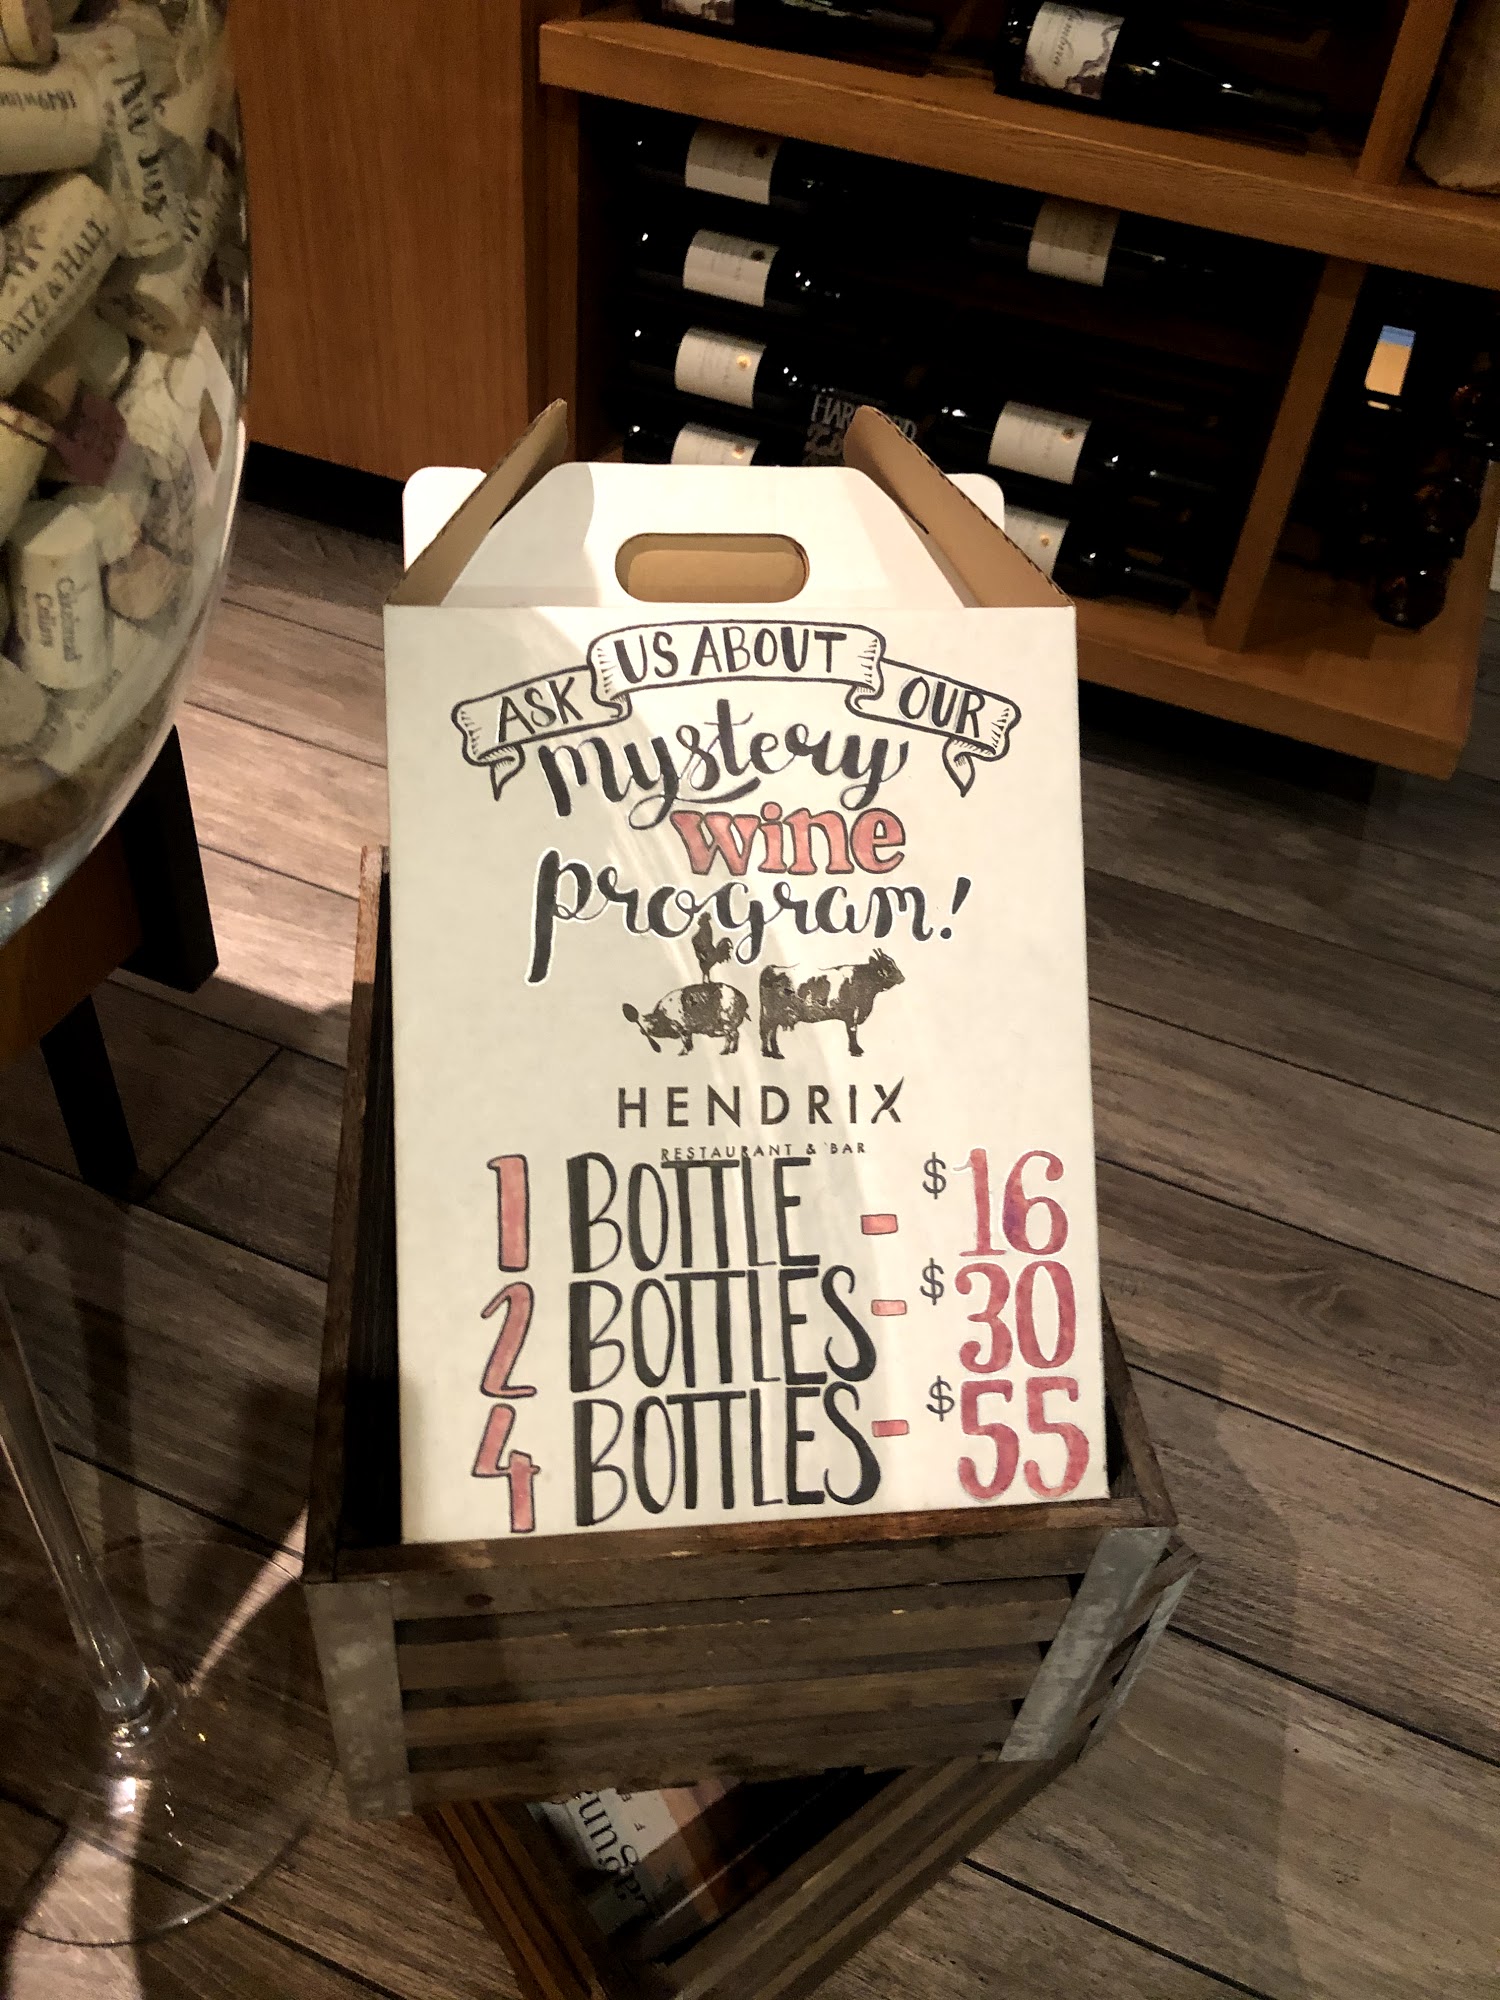 ASK US ABOUT OUR
mystery
wine
program!
HENDRIX
RESTAURANT & BAR
1 BOTTLE - $16
2 BOTTLES - $30
4 BOTTLES - $55
PATZ & HALL